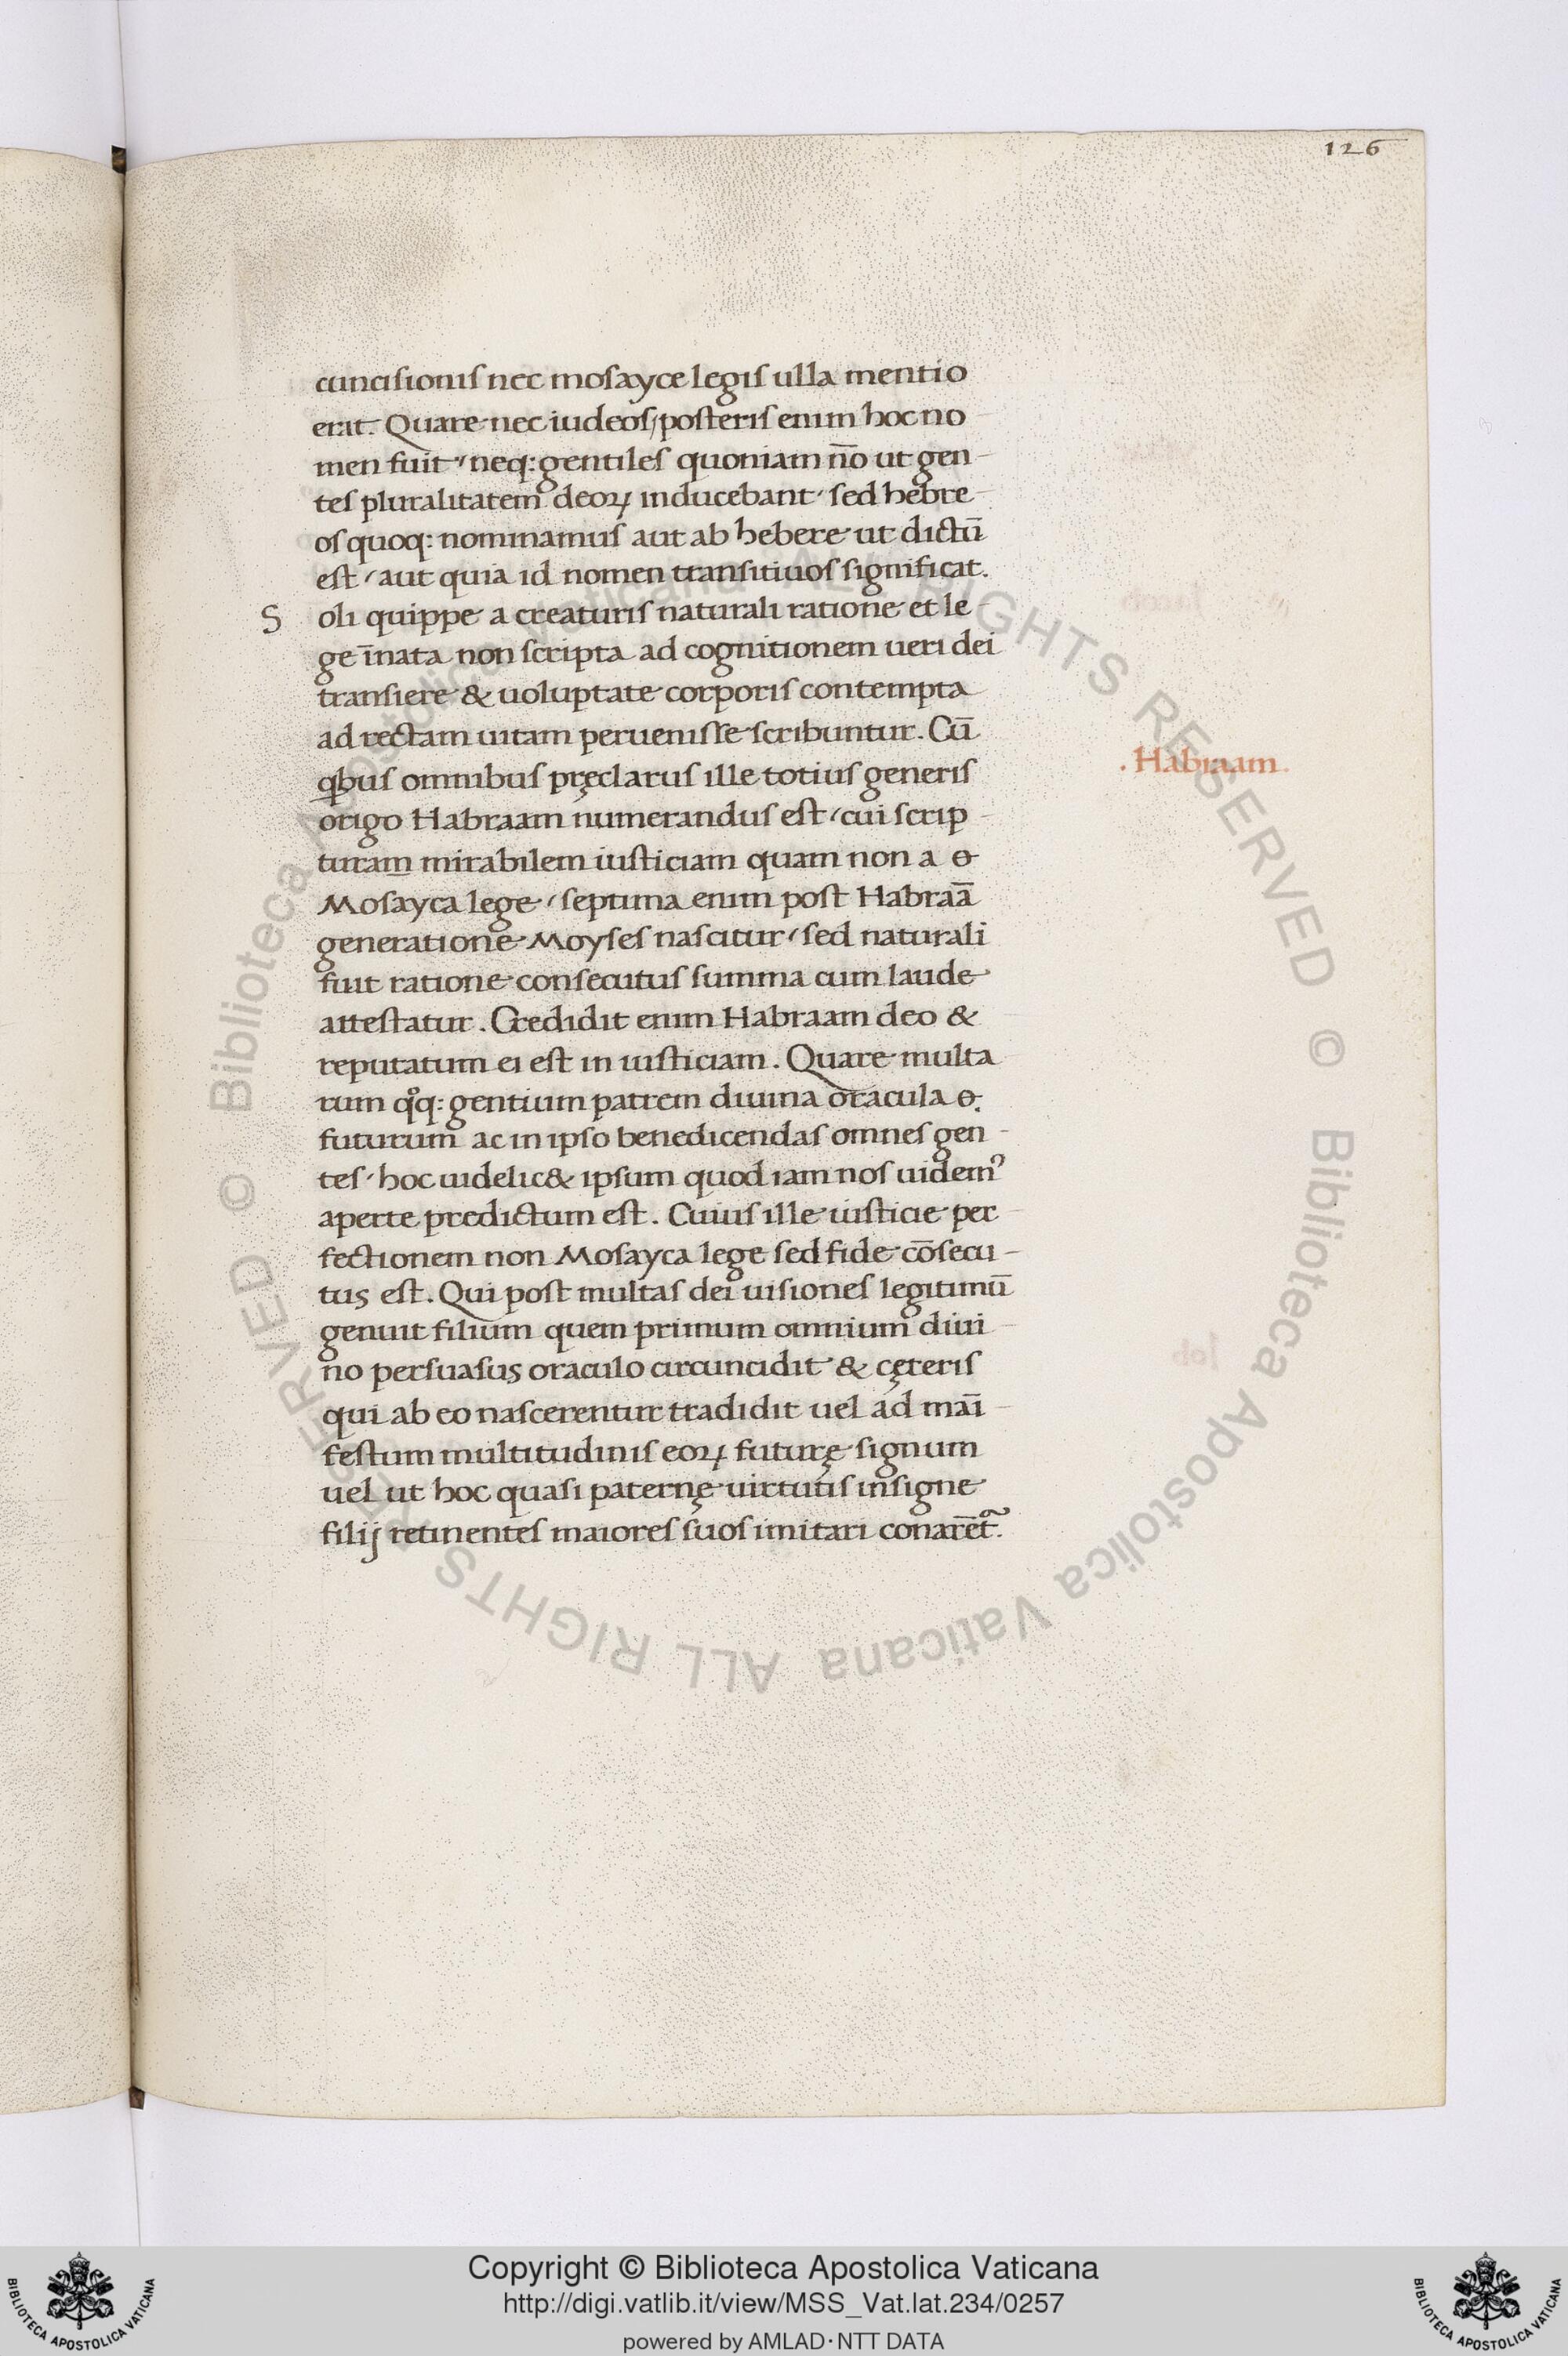 126
cuncisionis nec mosayce legis ulla mentio
erat. Quare nec iudeos/posteris enim hoc no
men fuit / neq: gentiles quoniam nō ut gen-
tes pluralitatem deoꝝ inducebant / sed hebre-
os quoq: nominamus aut ab hebere ut dictū
est / aut quia id nomen transitiuos significat.
Soli quippe a creaturis naturali ratione et le-
ge īnata non scripta ad cognitionem ueri dei
transiere & uoluptate corporis contempta
ad rectam uitam peruenisse scribuntur. Cū
qbus omnibus pręclarus ille totius generis
.Habraam.
origo Habraam numerandus est / cui scrip-
turam mirabilem iusticiam quam non a
Mosayca lege / septima enim post Habraā
generatione Moyses nascitur / sed naturali
fuit ratione consecutus summa cum laude
attestatur. Credidit enim Habraam deo &
reputatum ei est in iusticiam. Quare multa
rum qͦq: gentium patrem diuina oracula
futurum ac in ipso benedicendas omnes gen-
tes / hoc uidelic& ipsum quod iam nos uidemꝰ
aperte predictum est. Cuius ille iusticie per
fectionem non Mosayca lege sed fide cōsecu-
tus est. Qui post multas dei uisiones legitimū
genuit filium quem primum omnium diui
no persuasus oraculo circuncidit & cęteris
qui ab eo nascerentur tradidit uel ad maī
festum multitudinis eoꝝ futurę signum
uel ut hoc quasi paternę uirtutis insigne
filij retinentes maiores suos imitari conarēt᷑.
Copyright © Biblioteca Apostolica Vaticana
http://digi.vatlib.it/view/MSS_Vat.lat.234/0257
powered by AMLAD·NTT DATA
BIBLIOTECA APOSTOLICA VATICANA
BIBLIOTECA APOSTOLICA VATICANA
© Biblioteca Apostolica Vaticana ALL RIGHTS RESERVED
© Biblioteca Apostolica Vaticana ALL RIGHTS RESERVED